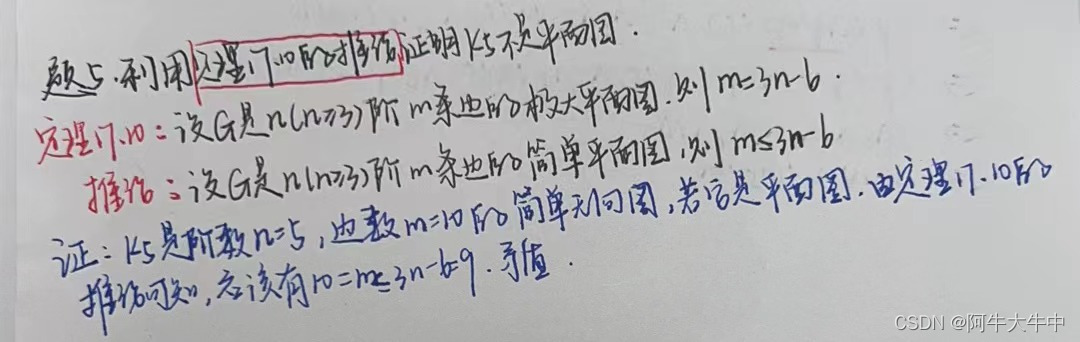 题5.利用定理17.10的推论证明K5不是平面图.
定理17.10:设G是n(n≥3)阶m条边的极大平面图.则m=3n-6.
推论:设G是n(n≥3)阶m条边的简单平面图,则m≤3n-6.
证:K5是阶数n=5,边数m=10的简单无向图,若它是平面图.由定理17.10的
推论可知,应该有10=m≤3n-6=9.矛盾.
CSDN @阿牛大牛中